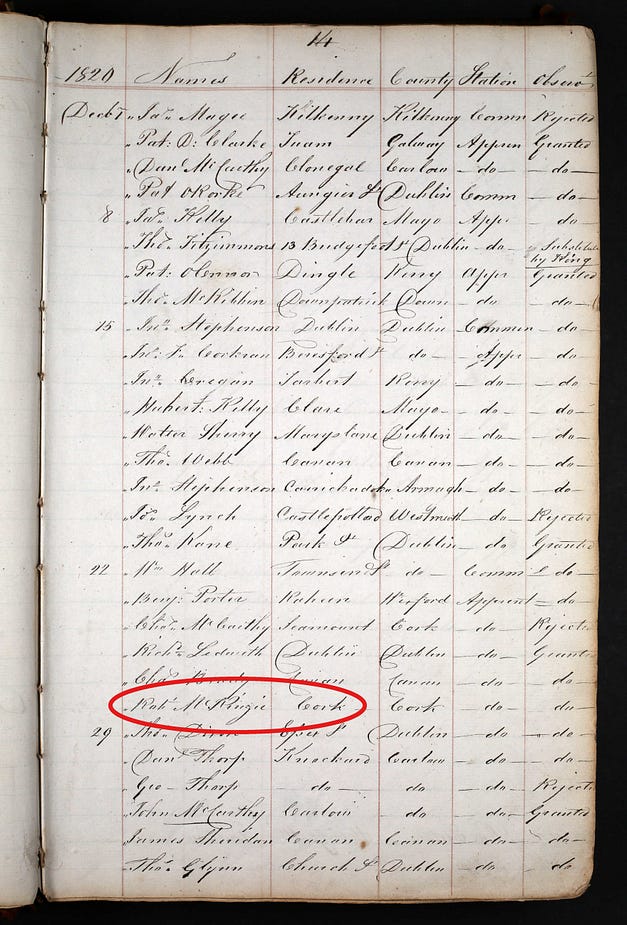 14
1820 Names Residence County Station Observt
Decbr 1 " Jas. Magee Kilkenny Kilkenny Comm Rejected
" Pat: D: Clarke Tuam Galway Appren Granted
" Danl McCarthy Clonegal Carlow - do - - do -
" Pat ORorke Aungier St Dublin Comm - do
8 " Jas. Kelly Castlebar Mayo App - do
" Thos. Fitzimmons 13 Bridgefoot St Dublin - do - " Substitute by King
" Pat: OConnor Dingle Kerry Appr Granted
" Thos. McKibbin Downpatrick Down - do - do -
15 " Jno. Stephenson Dublin Dublin Common - do
" Jno: F. Corkran Beresford St do - Appr - do
" Jno. Cregan Tarbert Kerry - do - - do
" Hubert Kelly Clare Mayo - do - - do -
" Walter Sherry Maryslane Dublin - do - - do -
" Thos. Webb Cavan Cavan - do - - do
" Jno. Stephenson Carrickadok Armagh - do - - do
" Jos. Lynch Castlepollard Westmeath - do - Rejected
" Thos. Kane Park St Dublin - do - Granted
22 " Wm Hall Townsend St do - Comm do -
" Benj: Porter Raheen Wexford Apprent - do
" Chas. McCarthy Seamount Cork - do - Rejected
" Richd. Ledwith Dublin Dublin - do - Granted
" Chas. Brady Cavan Cavan - do - do
" Robt McKinzie Cork Cork - do - do
29 " Thos. Dixon St Dublin - do - do
" Danl Thorp Knockard Carlow - do - do
" Geo - Thorp - do - do - do Rejected
" John McCarthy Carlow do - do Granted
" James Sheridan Cavan Cavan - do - do
" Thos. Glynn Church St Dublin - do - do